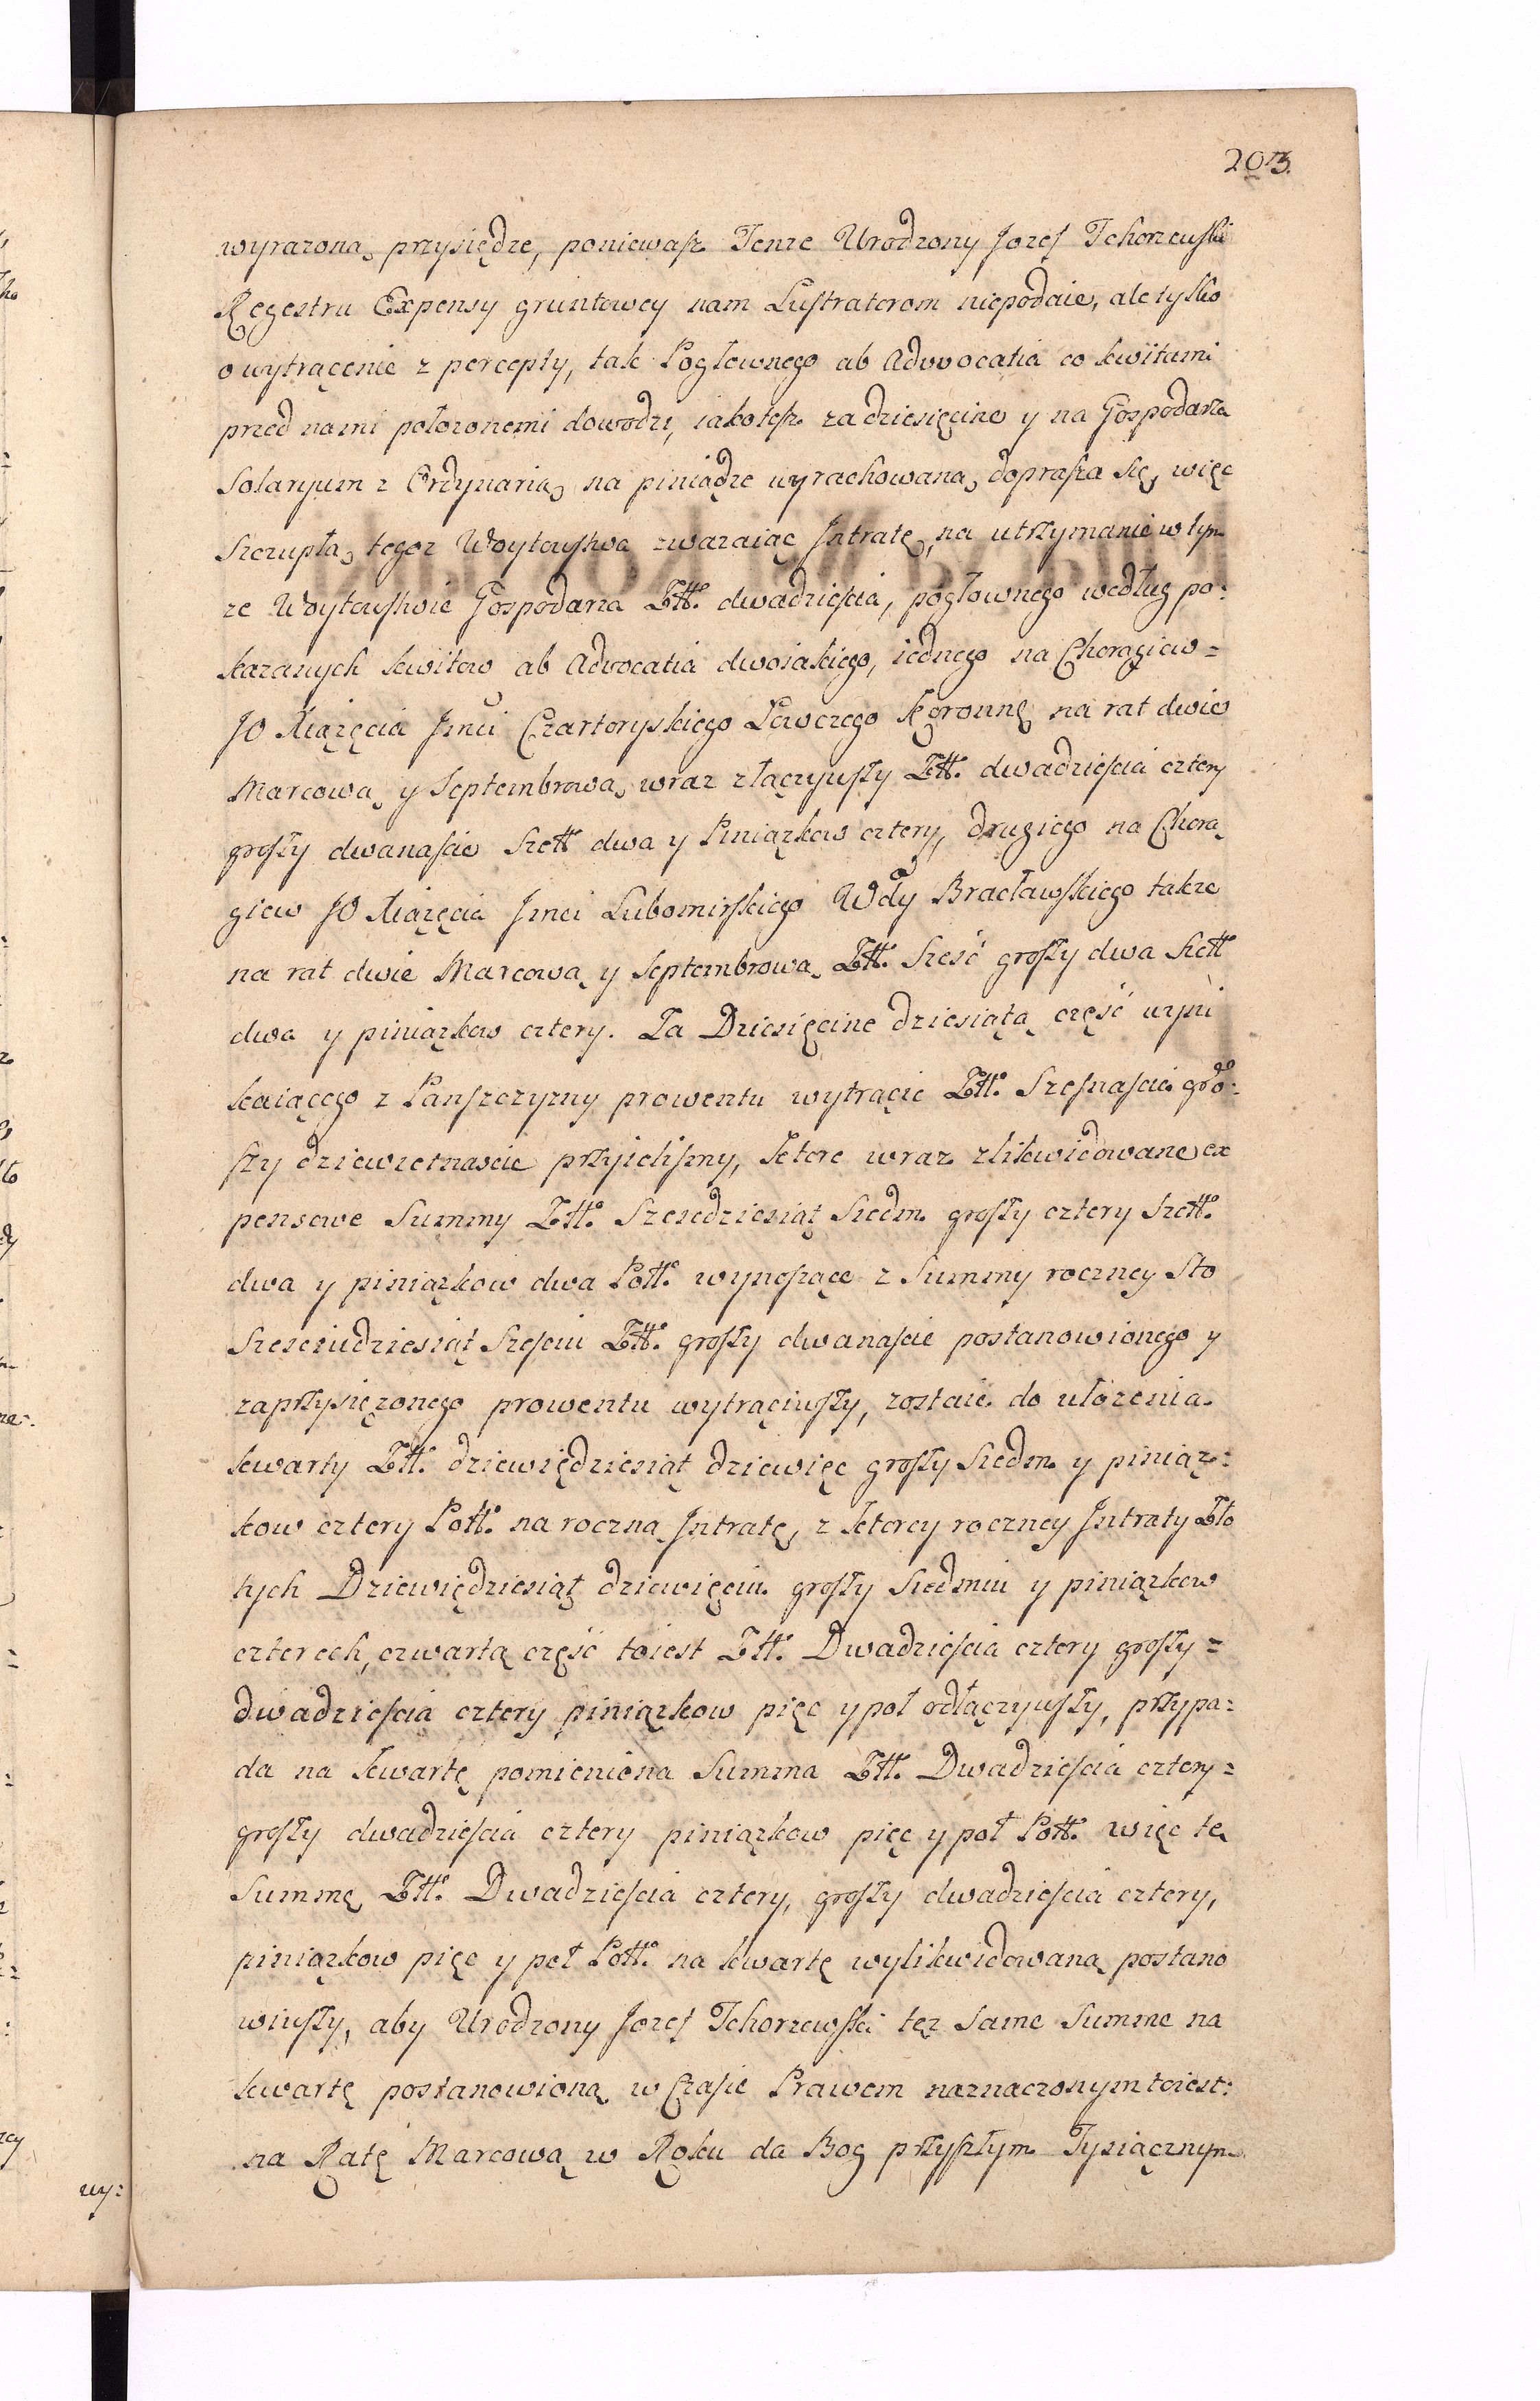 203.
wyrazoną przysiędze, poniewasz Tenze Urodzony Jozef Tchorzewski
Regestru Expensy gruntowey nam Lustratorom niepodaie, ale tylko
o wytrącenie z percepty, tak Pogłownego ab Advocatia co kwitami
przed nami połozonemi dowodzi, iakotesz za dziesięcine y na Gospodarza
Solaryum z Ordynarią na piniądze wyrachowaną doprasza się, więc
Szczupłą tegoz Woytowstwa zwazaiąc Jntratę, na utrzymanie w tym
ze Woytowstwie Gospodarza Złł. dwadziescia, pogłownego według po:
kazanych kwitow ab Advocatia dwoiakiego, iednego na Chorągiew =
JO Xiązęcia Jmci Czartoryskiego Łowczego Koronnę na rat dwie
Marcową y Septembrową wraz złączywszy Złł. dwadziescia cztery
groszy dwanascie Szełł dwa y Piniązkow cztery, drugiego na Chorą
giew JO Xiązęcia Jmci Lubomirskiego Wdy Bracławskiego takze
na rat dwie Marcową y Septembrową Złł. Sześć groszy dwa Szełł
dwa y piniązkow cztery. Za Dziesięcine dziesiątą część wyni
kaiącego z Panszczyzny prowentu wytrącic Złł. Szesnascie gro:
szy dziewietnascie przyielismy, ktore wraz zlikwidowane ex
pensowe Summy Złł. Szescdziesiąt Siedm groszy cztery Szełł.
dwa y piniązkow dwa Połł. wynoszące z Summy roczney Sto
Szesciudziesiąt Szesciu Złł. groszy dwanascie postanowionego y
zaprzysięzonego prowentu wytrąciwszy, zostaie do ułozenia
kwarty Złł. dziewiędziesiąt dziewięc groszy Siedm y piniąz:
kow cztery Połł. na roczną Jntratę, z ktorey roczney Jntraty Zło
tych Dziewiędziesiąt dziewięciu groszy Siedmiu y piniązkow
czterech, czwartą część toiest Złł. Dwadziescia cztery groszy =
dwadziescia cztery piniązkow pięc y poł odłączywszy, przypa:
da na kwartę pomieniona Summa Złł. Dwadziescia cztery =
groszy dwadziescia cztery piniązkow pięc y poł Połł. więc tę
Summę Złł. Dwadziescia cztery, groszy dwadziescia cztery,
piniązkow pięc y poł Połł. na kwartę wylikwidowaną postano
wiwszy, aby Urodzony Jozef Tchorzewski tęz Same Summe na
kwartę postanowioną w Czasie Prawem naznaczonym toiest:
na Ratę Marcową w Roku da Bog przyszłym Tysiącznym
wy: